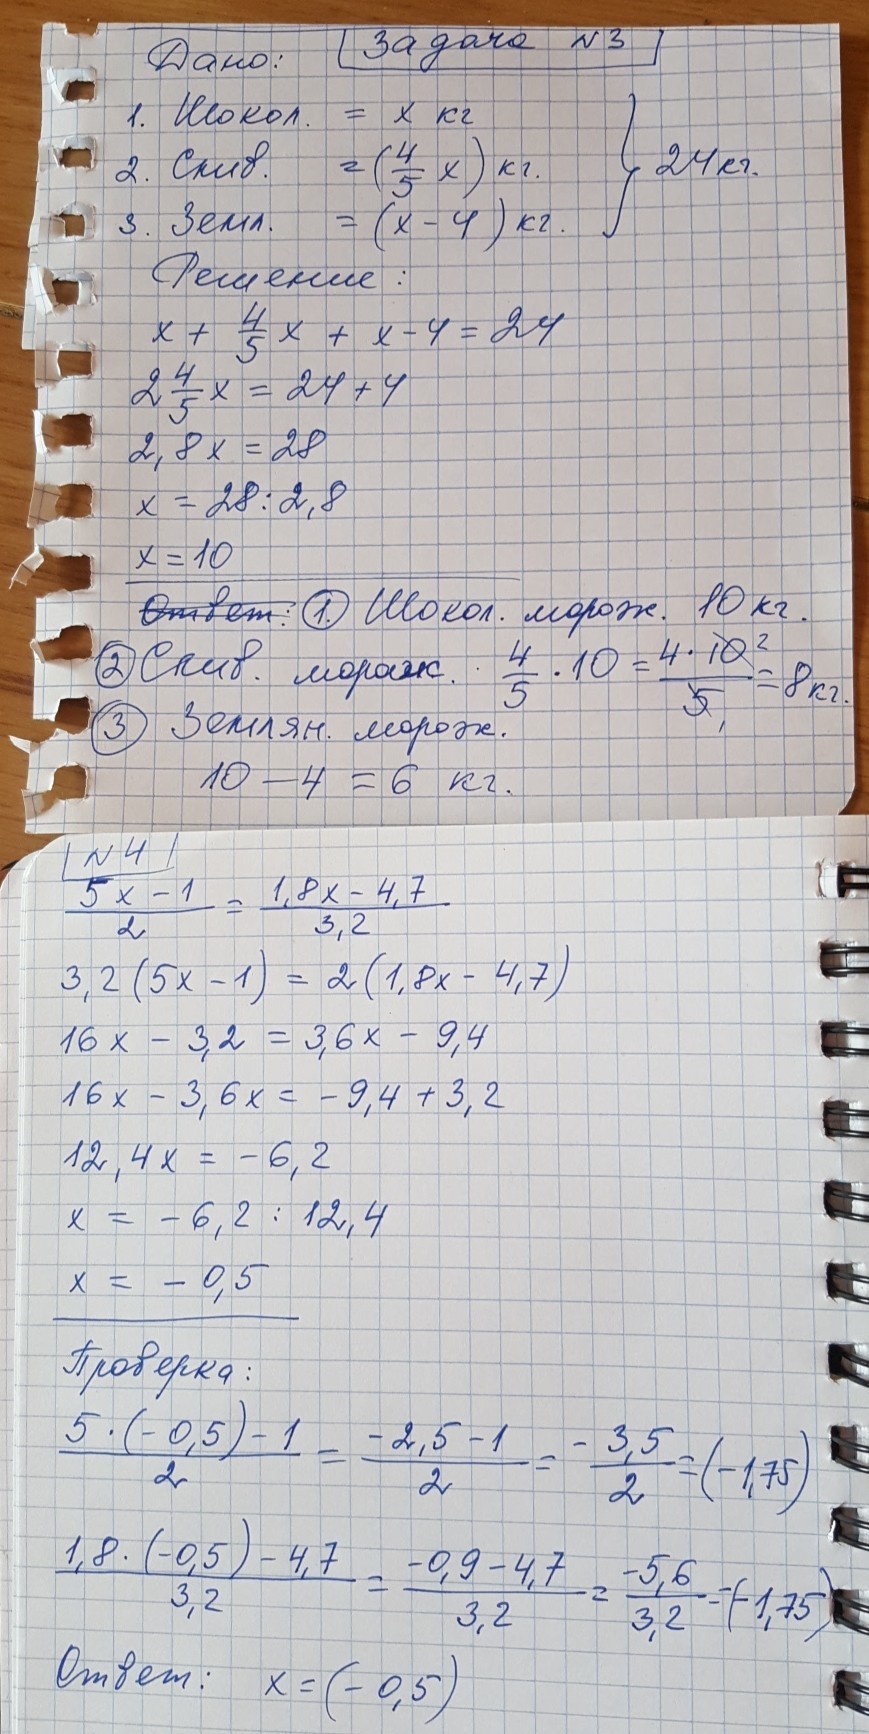 Дано: Задача №3
1. Шокол. = x кг
2. Слив. = (4/5 x) кг. } 24 кг.
3. Земл. = (x - 4) кг.
Решение:
x + 4/5 x + x - 4 = 24
2 4/5 x = 24 + 4
2,8x = 28
x = 28 : 2,8
x = 10
Ответ: ① Шокол. морож. 10 кг.
② Слив. морож. 4/5 · 10 = 4 · 10 ² / 5 ₁ = 8 кг.
③ Землян. морож.
10 - 4 = 6 кг.
№4
5x - 1 / 2 = 1,8x - 4,7 / 3,2
3,2 (5x - 1) = 2 (1,8x - 4,7)
16x - 3,2 = 3,6x - 9,4
16x - 3,6x = - 9,4 + 3,2
12,4x = - 6,2
x = - 6,2 : 12,4
x = - 0,5
Проверка:
5 · (- 0,5) - 1 / 2 = - 2,5 - 1 / 2 = - 3,5 / 2 = (- 1,75)
1,8 · (-0,5) - 4,7 / 3,2 = -0,9 - 4,7 / 3,2 = -5,6 / 3,2 = (- 1,75)
Ответ: x = (- 0,5)